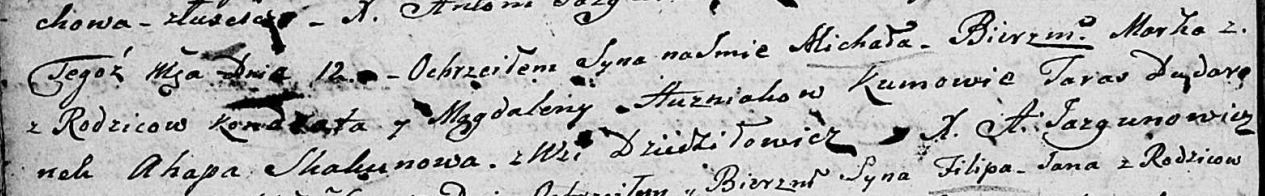 chowa - X. Antoni
Tegoż Mca Dnia 12. - Ochrzciłem Syna na Imie Michała - Bierzmº Marka z.
z Rodzicow Kondrata y Magdaleny Kuzniakow Kumowie Taras Dudaro
nek Ahapa Skakunowa. z Wsi Dziedziłowicz X. A. Jazgunowicz
Dnia Ochrzciłem y Bierzmº Syna Filipa Jana z Rodzicow